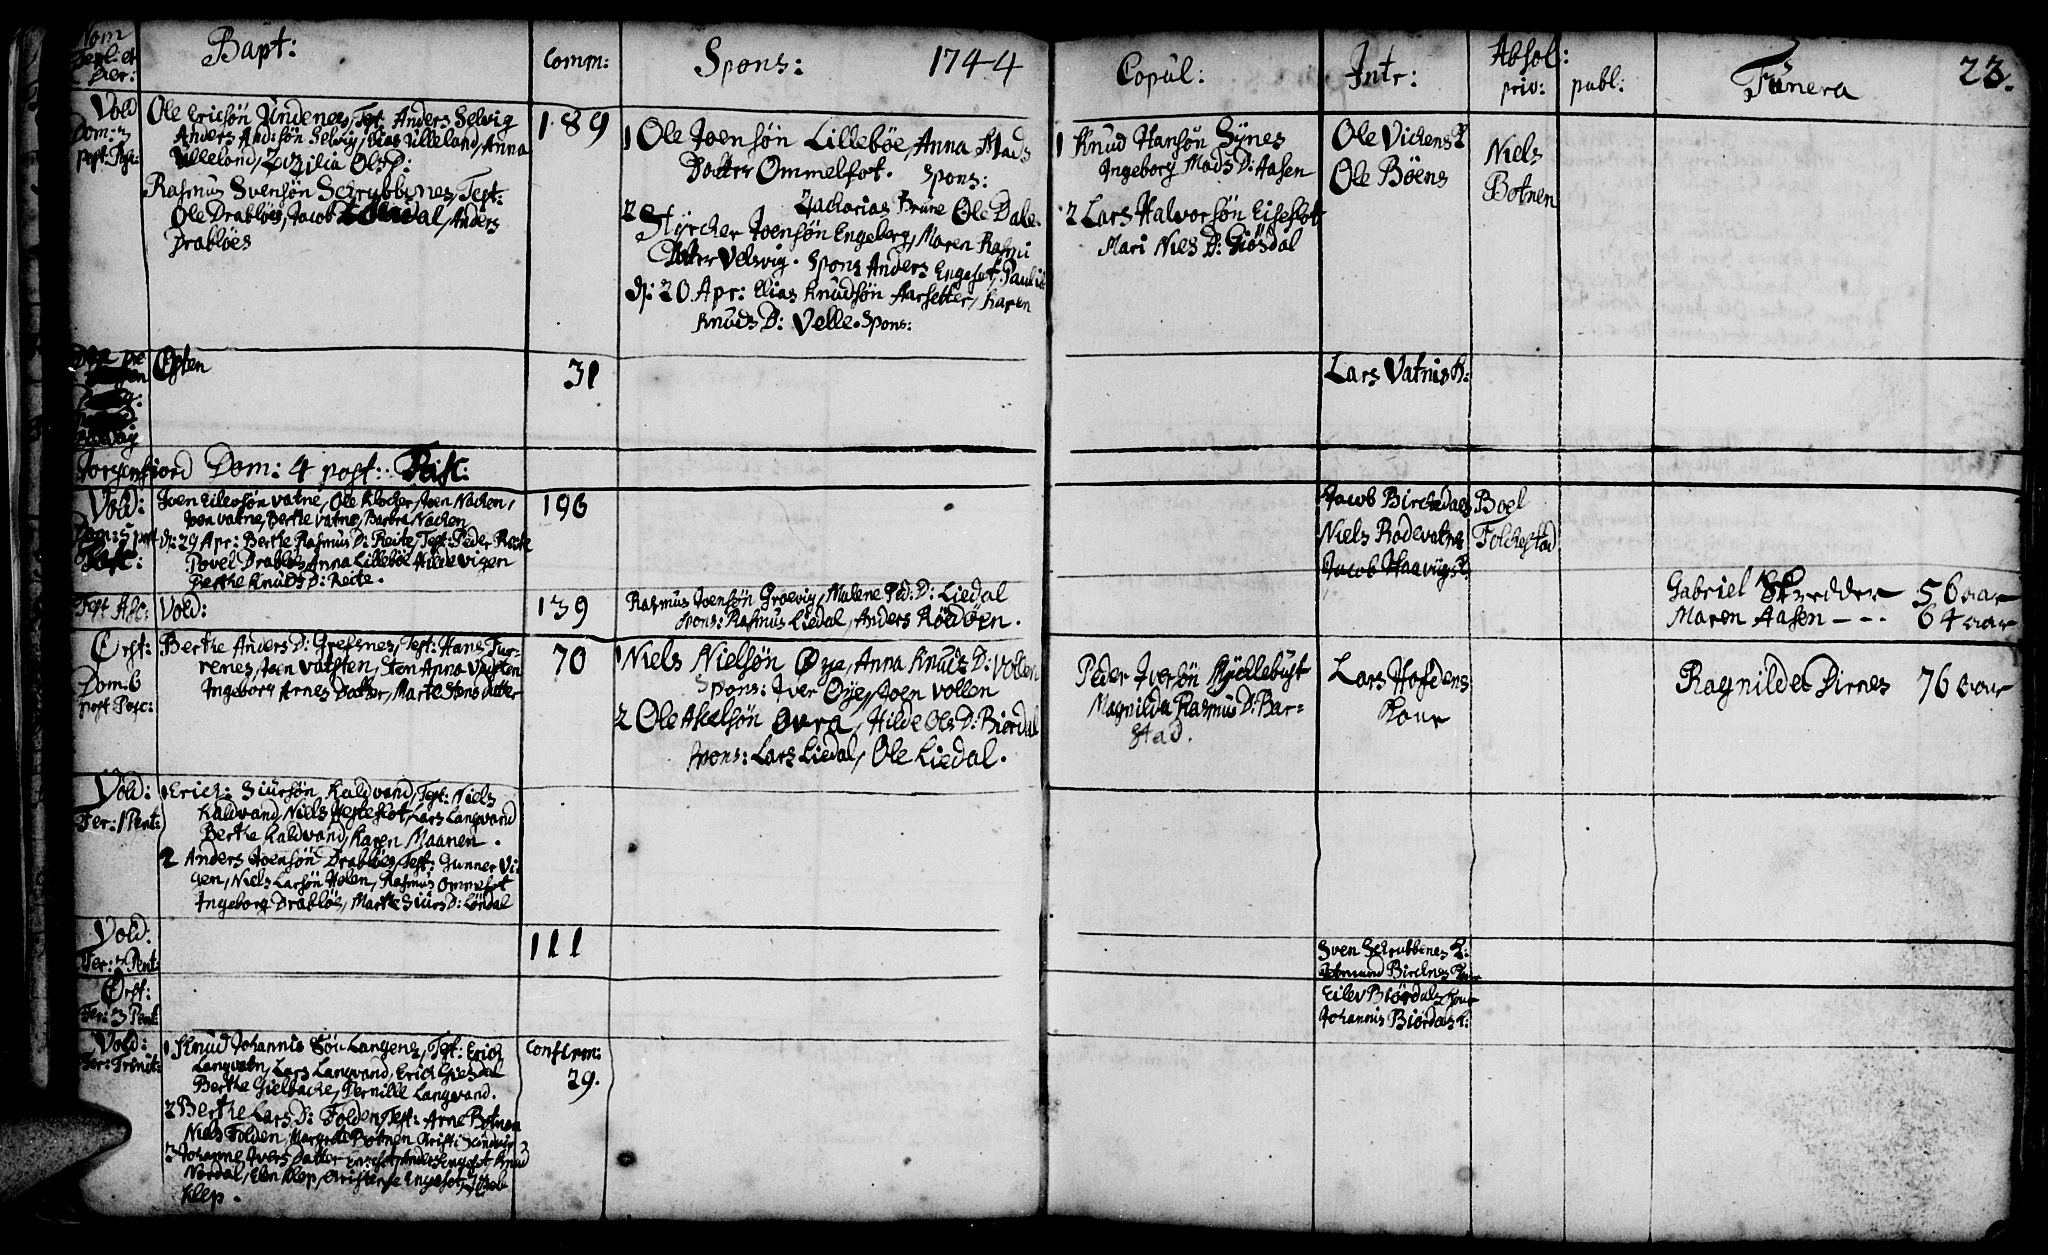 Nom
Templ: et
Dier:
Bapt:
Comm:
Spons: 1744
Copul:
Intr:
Absol:
priv: publ:
Funera
23.
Vold
Dom: 3
post: Pasc:
Ole Ericsøn Undenes, Test: Anders Selvig
Anders And:søn Selvig, Elias Ulleland, Anna
Ulleland, Zizilia Ols D:
Rasmus Svensøn Schrubbenes, Test:
Ole Drabløs, Jacob Løndal, Anders
Drabløes
189
1 Ole Joensøn Lillebøe, Anna Mads
Datter Ommelfot. Spons:
Zacharias Brune Ole Dale
2 Styrcher Joensøn Engeberg, Maren Rasmi
Datter Velsvig. Spons Anders Engeset, Paul
d: 20 Apr: Elias Knudsøn Aarsetter, Karen
Knuds D: Velle. Spons:
1 Knud Hansøn Synes
Ingeborg Mads D: Aasen
2 Lars Halvorsøn Eiseslot
Mari Niels D: Giøsdal
Ole Vickens K
Ole Bøens
Niels
Botnen
Østen
31
Lars Vatnis K:
Jorgenfiord Dom: 4 post: Pasc:
Vold:
Dom: 5 post
Pasc:
Joen Eilevsøn Vatne, Ole Klocher, Joen Nachen,
Joen Vatne, Berthe Vatne, Barbra Nachen
d: 29 Apr: Berthe Rasmus D: Reite, Test: Peder Reite
Povel Drabløs, Anna Lillebøe Hilde Vigen
Berthe Knuds D: Reite.
196
Jacob Birchedals
Niels Rodevatns
Jacob Haavigs K:
Boel
Folchestad
Fest Asc: Vold:
139
Rasmus Joensøn Groevig, Malene Ped: D: Liedal
Spons: Rasmus Liedal, Anders Rødøen.
Gabriel Skredder 56 aar
Maren Aasen - - - 64 aar
Ørst:
Dom: 6
post Pasc:
Berthe Anders D: Grefsnes, Test: Hans Fur-
renes, Joen Vatsten, Sten Anna Vatsten
Ingeborg Arnes Datter, Marte Stens Datter
70
1 Niels Nielsøn Øye, Anna Knuds D: Vollen
Spons: Iver Øye, Joen Vollen
2 Ole Akelsøn Øvra, Hilde Ols D: Biørdal
Spons: Lars Liedal, Ole Liedal.
Peder Iversøn Mjellebust
Magnilda Rasmus D: Bar-
stad.
Lars Hofdens
Kone
Ragnilde Dirnes 76 aar
Vold:
Fer: 1 Pent:
1 Erich: Siursøn Kaldvand, Test: Niels
Kaldvand, Niels Hesteflot, Lars Langvand
Berthe Kaldvand, Karen Maanen.
2 Anders Joensøn Drabløs, Test: Gunner Vi-
gen, Niels Larsøn Holen, Rasmus Ommefot
Ingeborg Drabløs, Marte Siurs D: Løndal
Vold:
Fer: 2 Pent:
111
Sven Schrubbenes K:
Aamund Birchnes Kone
Ørst:
Fer: 3 Pent:
Eilev Biørdals Kone
Johannis Biørdals K:
Vold:
Fer: Trinit:
1 Knud Johannis Søn Langenz, Test: Erich
Langvatn, Lars Langvand, Erich Giøsdal
Berthe Gielbache, Pernille Langvand.
2 Berthe Lars D: Folden, Test: Arne Botnen
Niels Folden, Margrete Botnen Kristi Sandvig
3 Johanne Ivers Datter Engeset, Anders Engeset Knud
Nordal, Elen Klep, Christense Engeset, Jacob
Klep.
Confirm:
29.